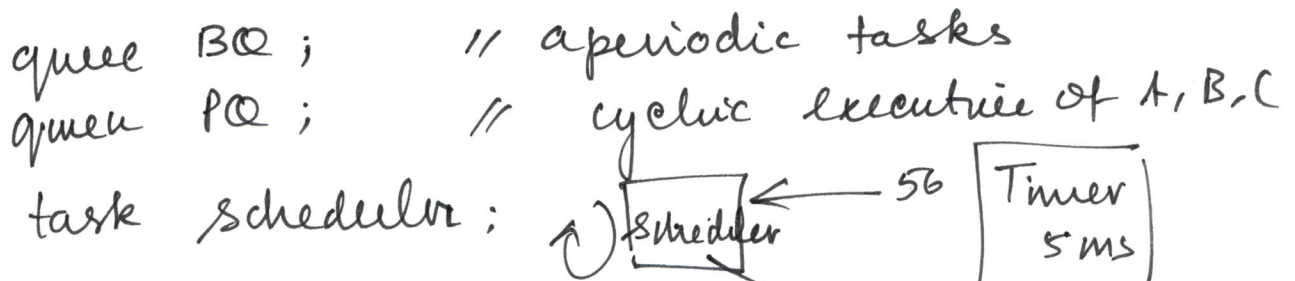 queue BQ ; // aperiodic tasks
queue PQ ; // cyclic executive of A, B, C
task scheduler : scheduler 56 Timer
5 ms